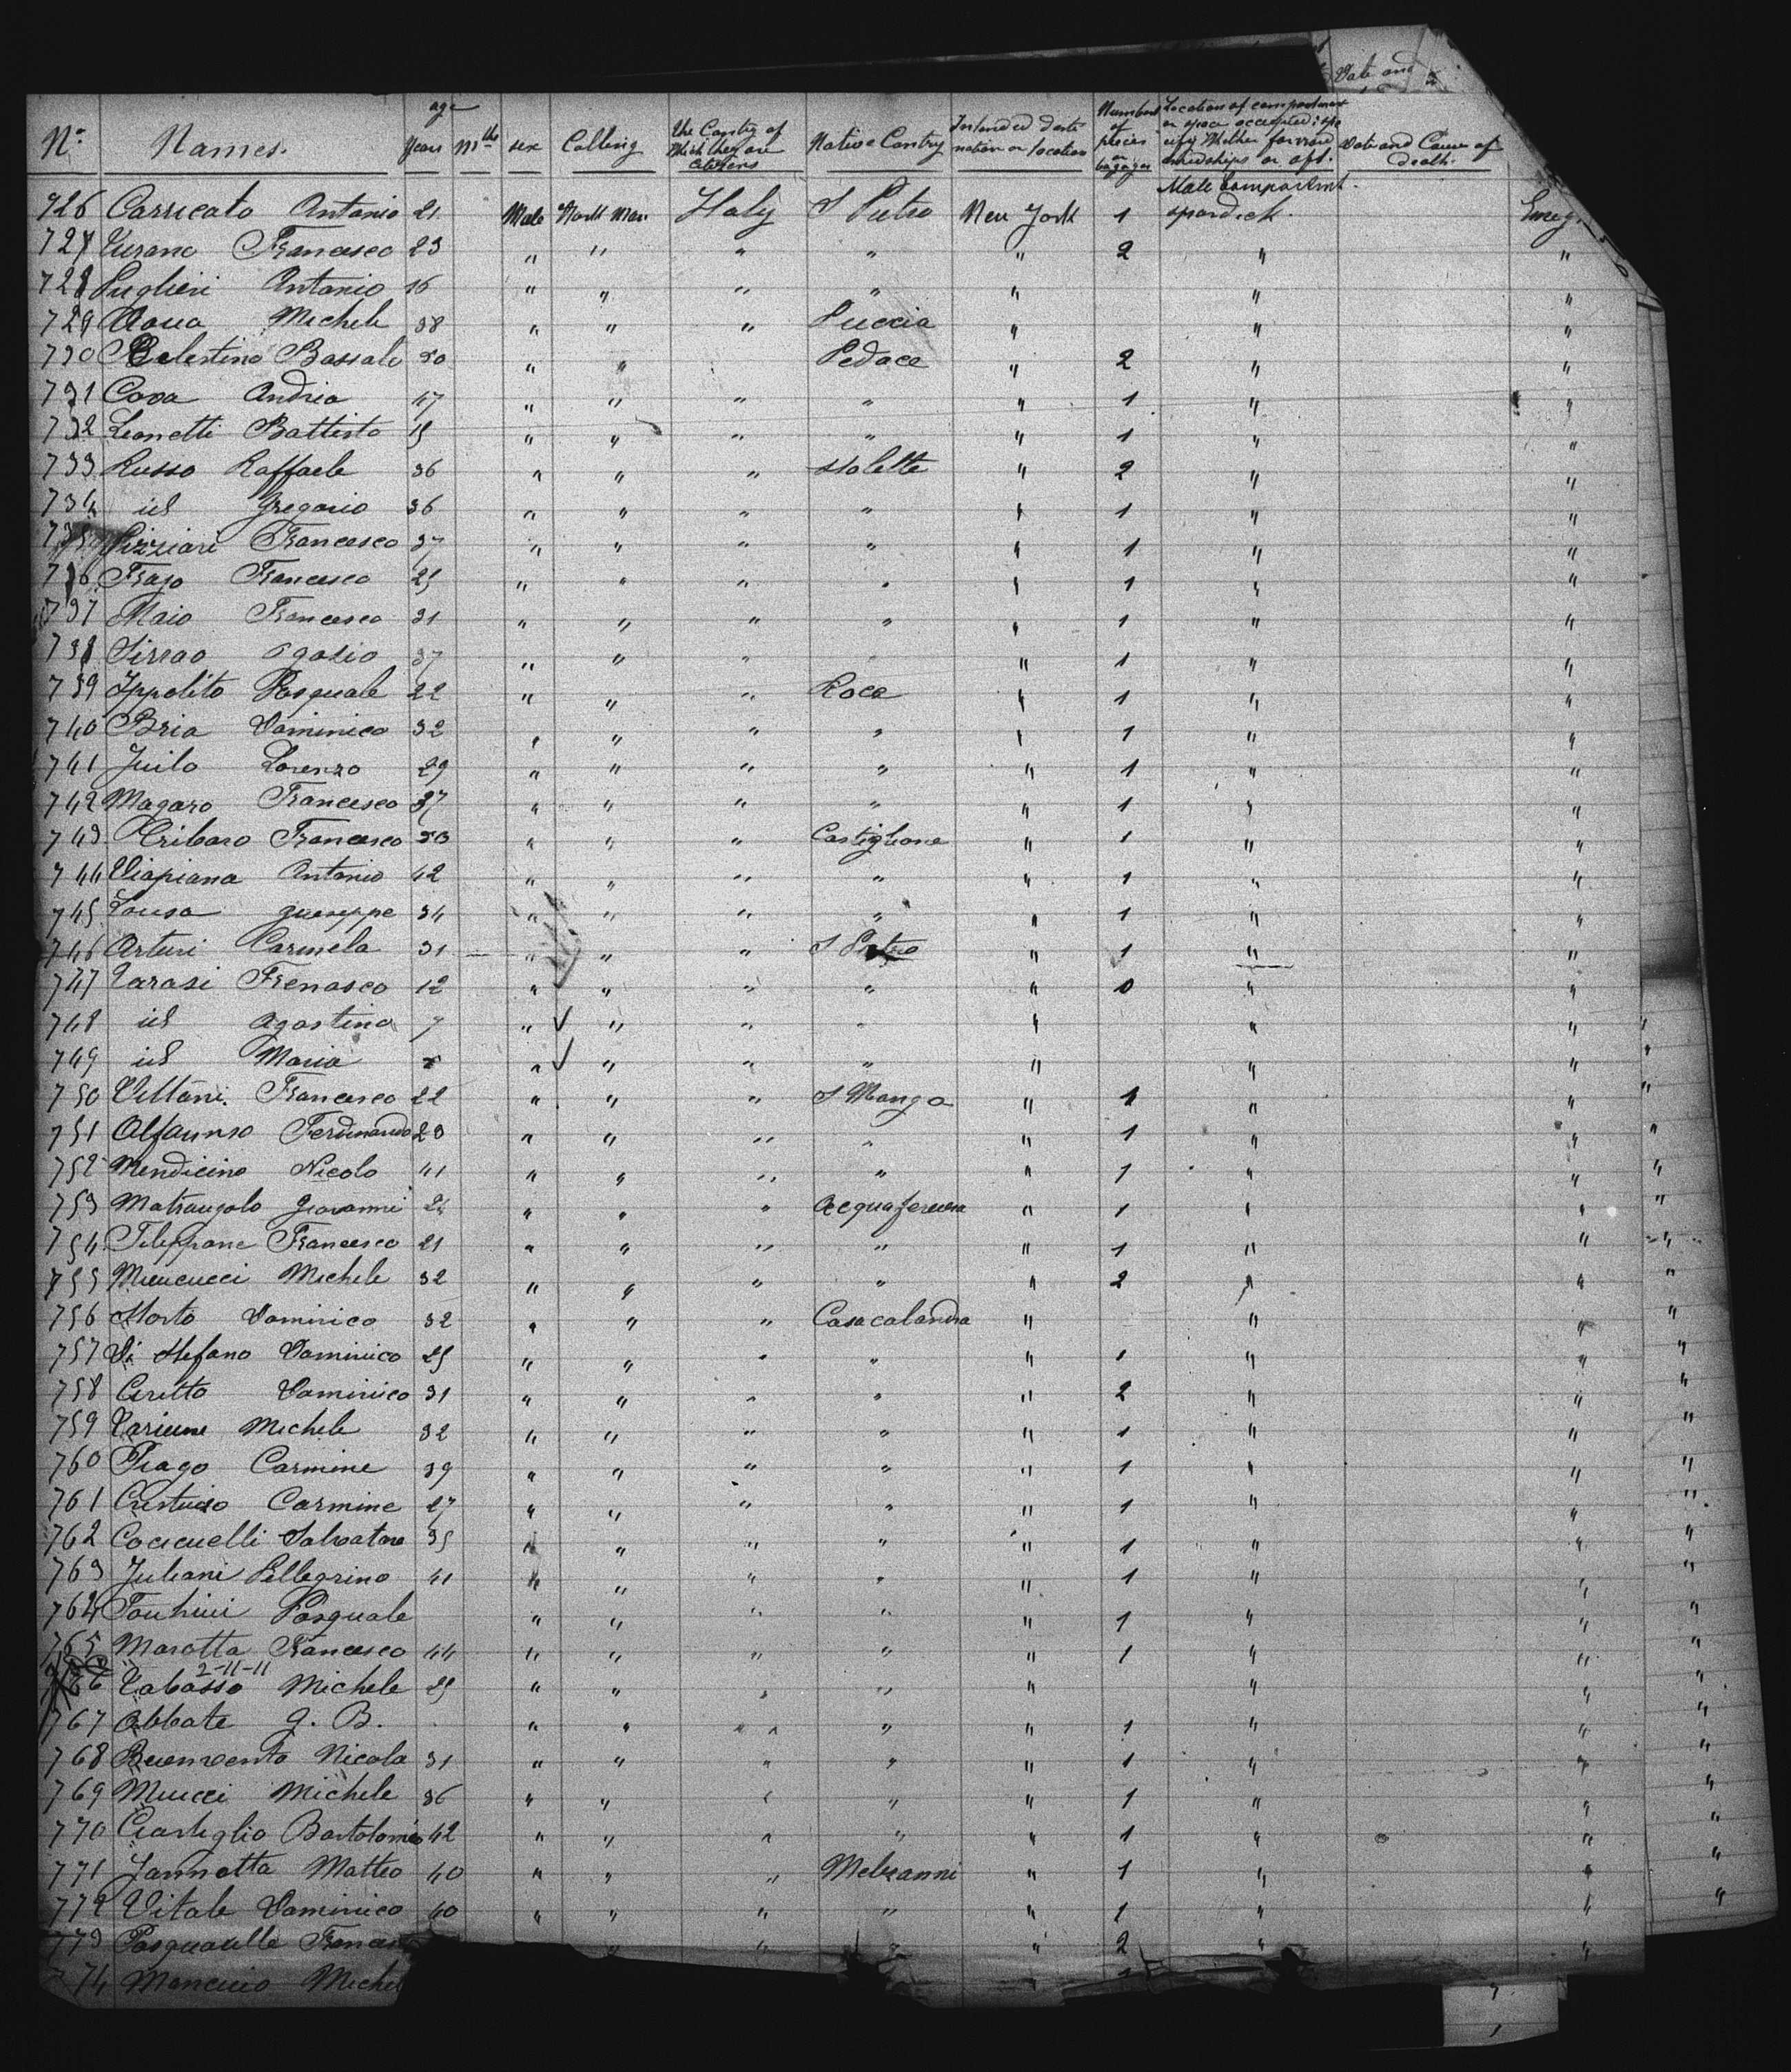 Date and
N° Names. age Years mths sex Calling the Contry of Which they are Citizens Native Contry Intended desti nation or location Number of pieces or bagages Location of compartment or space occupied: spe cify Whether forward amidships or aft. Date and Cause of death.
Male Compartment.
726 Carricato Antonio 21 Male Work Man Italy S Pietro New York 1 spardeck.
727 Francesco 23 " " " " " 2 " "
728 Puglieri Antonio 16 " " " " " " "
729 Michele 38 " " " " " "
730 Celestino Bassale " " Pedace " 2 " "
731 Cava Andrea 47 " " " " " 1 " "
732 Leonetti Battista 19 " " " " " 1 " "
733 Russo Raffaele 36 " " " " 2 " "
734 id Gregorio 36 " " " " " 1 " "
735 Pizziari Francesco 37 " " " " " 1 " "
736 Frajo Francesco 25 " " " " " 1 " "
737 Maio Francesco 31 " " " " " 1 " "
738 Sirrao 37 " " " " " 1 " "
739 Ippolito Pasquale 22 " " " Roca " 1 " "
740 Bria Dominico 32 " " " " " 1 " "
741 Juilo Lorenzo 29 " " " " " 1 " "
742 Magaro Francesco 37 " " " " " 1 " "
743 Cribaro Francesco " " " Castiglione " 1 " "
744 Viapiana Antonio 42 " " " " " 1 " "
745 Giuseppe 34 " " " " " 1 " "
746 Arturi Carmela 31 " " " S Pietro " 1 " "
747 Varasi 12 " " " " " 0 " "
748 id Agostino 7 " " " " " " "
749 id Maria " " " " " " "
750 Villani Francesco 22 " " " S Mango " 1 " "
751 Alfaunso Ferdinando 23 " " " " " 1 " "
752 Mendicino Nicolo 41 " " " " " 1 " "
753 Matrangolo Giovanni 24 " " " " 1 " "
754 Francesco 21 " " " " " 1 " "
755 Miucucci Michele 32 " " " " " 2 " "
756 Dominico 32 " " " Casacalanda " " "
757 Di Stefano Dominico 25 " " " " " 1 " "
758 Ceritto Dominico 31 " " " " " 2 " "
759 Michele 32 " " " " " 1 " "
760 Carmine 39 " " " " " 1 " "
761 Carmine 27 " " " " " 1 " "
762 Salvatore 35 " " " " " 1 " "
763 Juliani Pellegrino 41 " " " " " 1 " "
764 Pasquale " " " " " 1 " "
765 Marotta Francesco 44 " " " " " 1 " "
2-11-11
766 Tabasso Michele 25 " " " " " " "
767 Abbate G. B. " " " " " 1 " "
768 Nicola 31 " " " " " 1 " "
769 Miucci Michele 36 " " " " " 1 " "
770 Ciastiglio Bartolomeo 42 " " " " " 1 " "
771 Jannotta Matteo 40 " " " " 1 " "
772 Vitale Dominico 40 " " " " " 1 " "
773 " " " " 2 " "
74 Mancuso